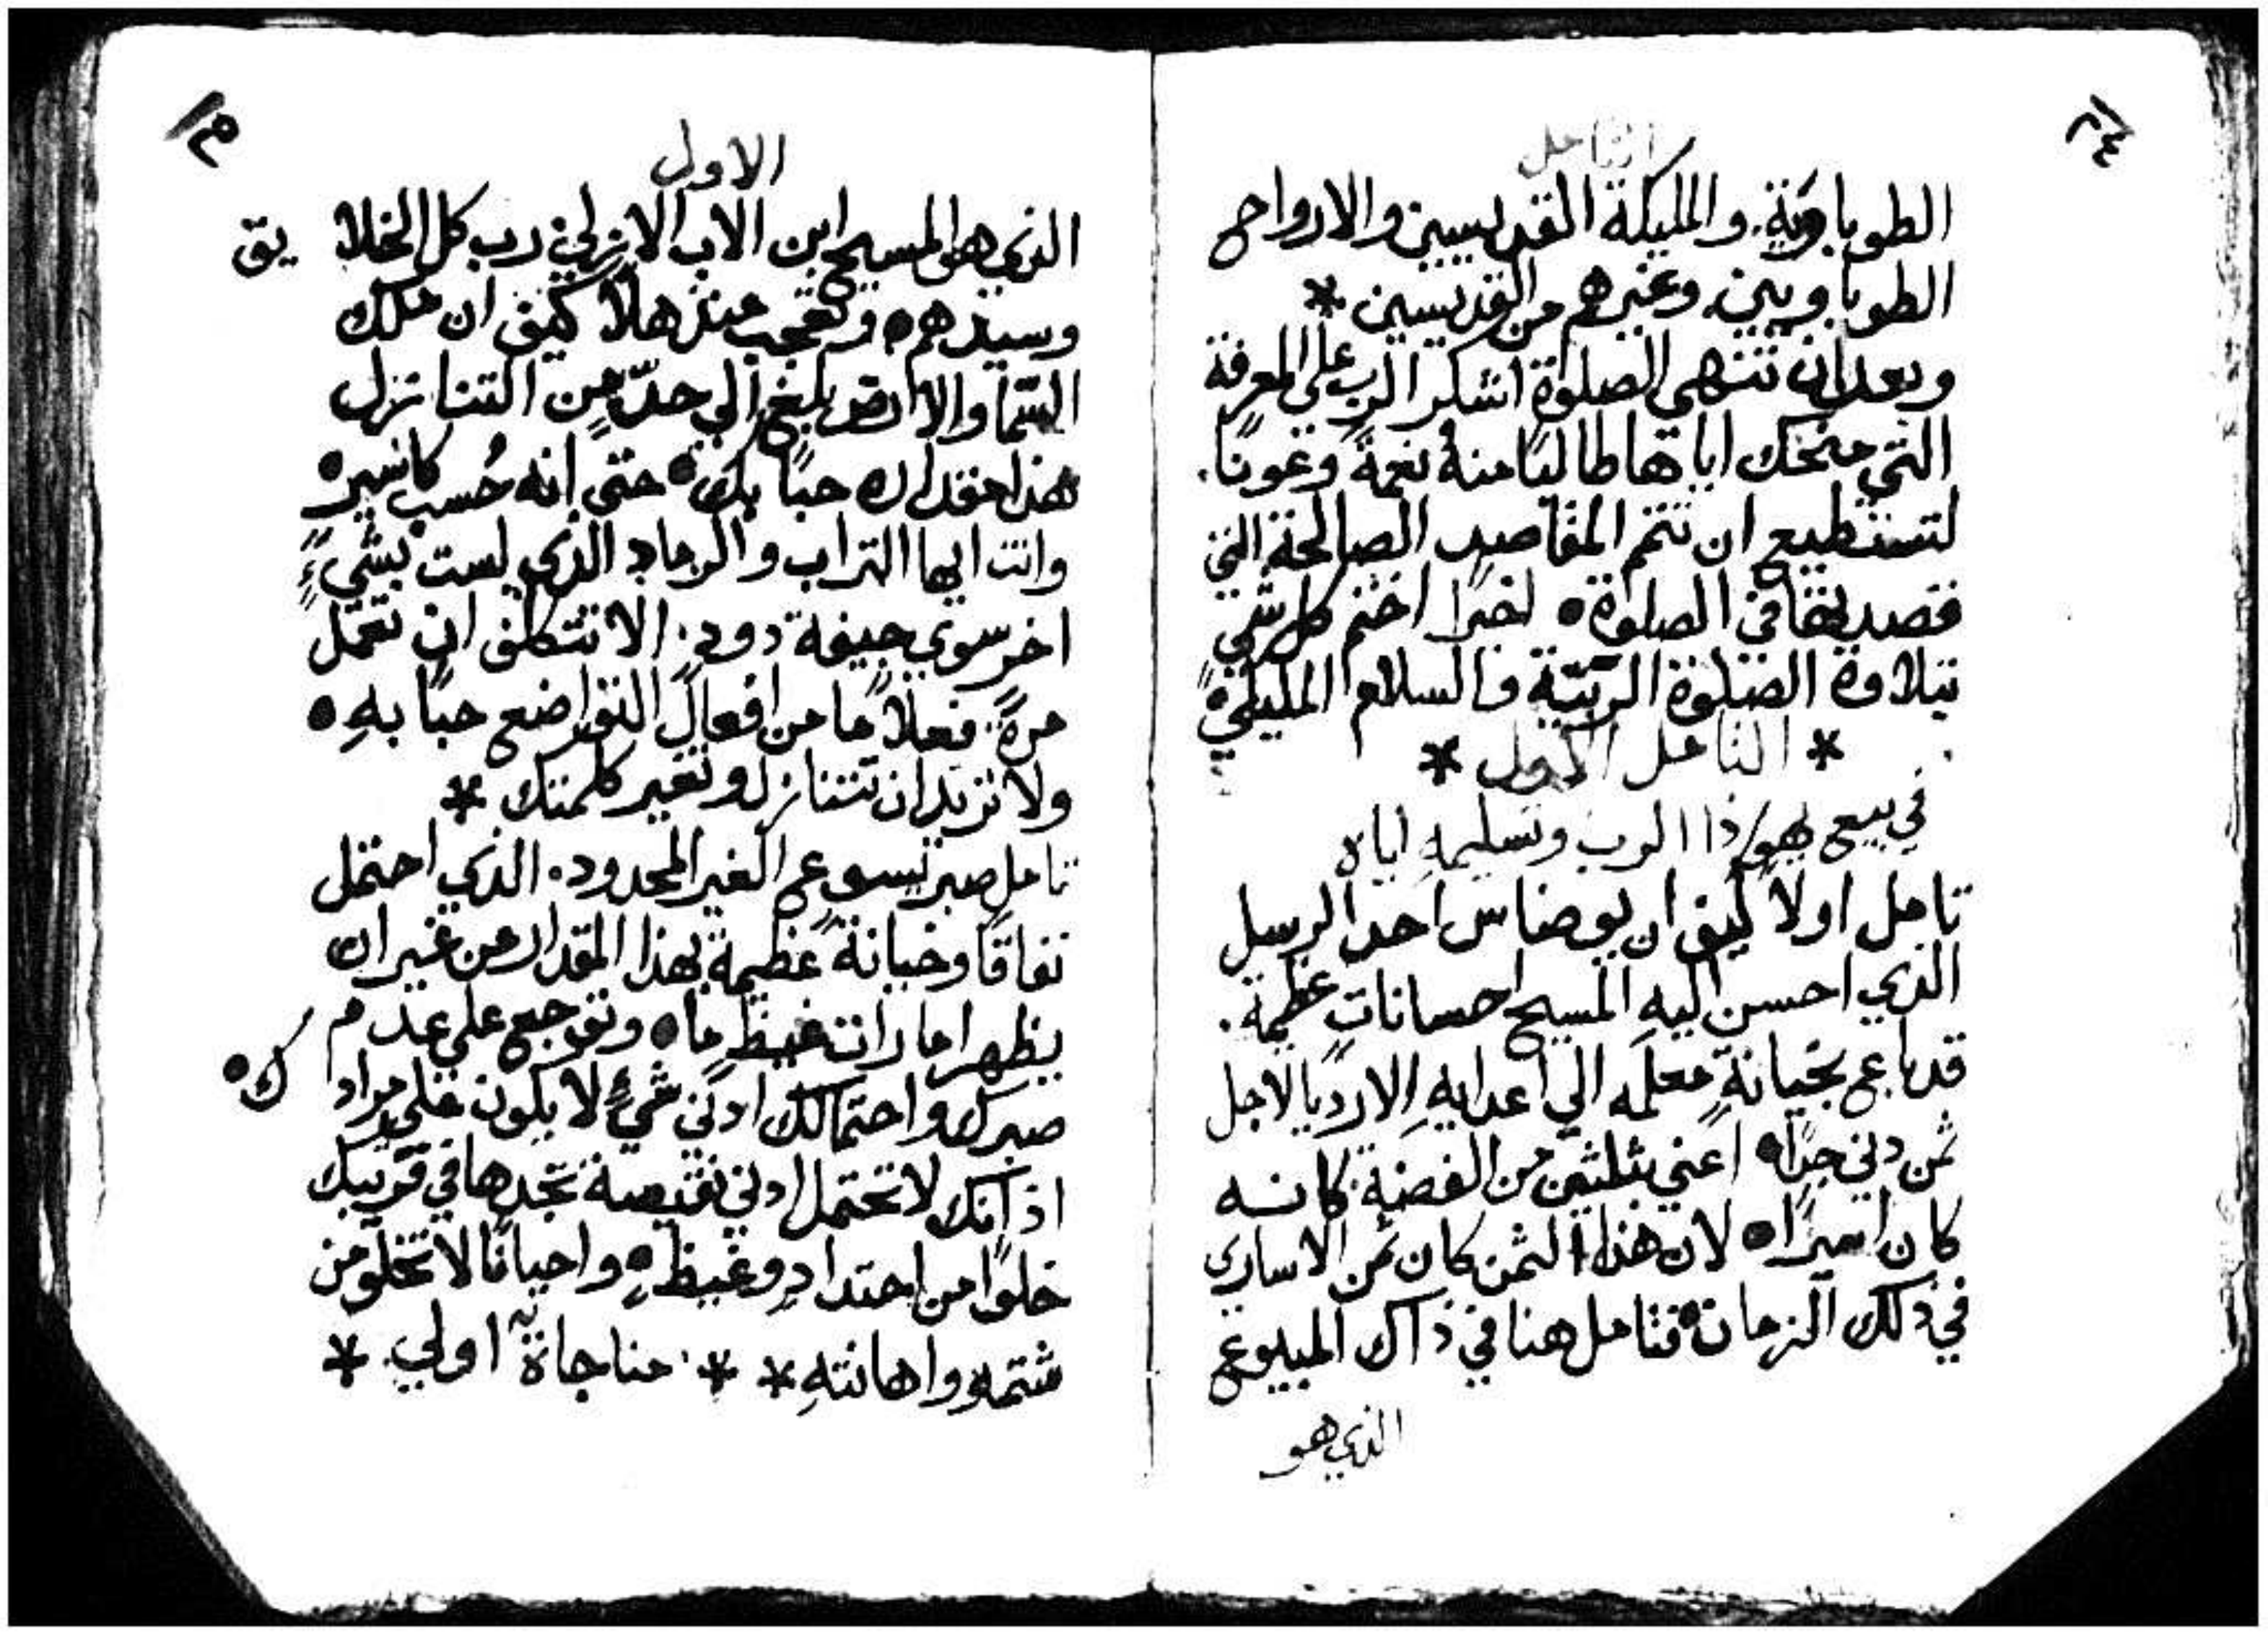 التامل
الطوباوية. والمليكة القديسيين والارواح
الطوباويين. وغيرهم من القديسين *
وبعد ان تنتهي الصلوة اشكر الرب على المعرفة
التي منحك اياها طالبًا منهُ نعمةً وعونًا.
لتستطيع ان تتم المقاصد الصالحة التي
قصدتها في الصلوة • اخيرًا اختم كل شي
بتلاوة الصلوة الربيّة والسلام المليكي •
* التامل الاول *
في بيع يهوذا الرب وتسليمهِ اياه
تامل اولاً كيف ان يوضاس احد الرسل
الذي احسن اليهِ المسيح احساناتٍ عظيمة.
قد باع بخيانةٍ معلمَه الي اعدايهِ الارديا لاجل
ثمن دني جدًا • اعني بثلثين من الفضة. كانه
كان اسيرًا • لان هذا الثمن كان ثمن الاساري
في ذلك الزمان • فتامل هنا في ذاك المبيوع
الذي هو
الاول
الذي هو المسيح ابن الاب الازلي. رب كل الخلايق
وسيدهم • وتعجب منذهلاً كيف ان ملك
السما والارض بلغ الي حدٍّ من التنازل
هذا مقداره حبًا بك • حتي انه حُسب كاسير •
وانت ايها التراب والرماد الذي لست بشيءٍ
اخر سوي جيفة دود. الا تتكلف ان تعمل
مرةً. فعلاً ما من افعال التواضع حبًا بهِ •
ولا تريد ان تتنازل وتغير كلمتك *
تامل صبر يسوع الغير المحدود. الذي احتمل
نفاقًا وخيانةً عظيمة بهذا المقدار من غير ان
يظهر امارات غيظٍ ما • وتوجع علي عدم
صبرك واحتمالك ادني شيءٍ لا يكون علي مرادك •
اذ انك لا تحتمل ادني نقيصة تجدها في قريبك
خلوًا من احتدادٍ وغيظٍ • واحيانًا لا تخلو من
شتمهِ واهانتهِ * * مناجاة اولي *